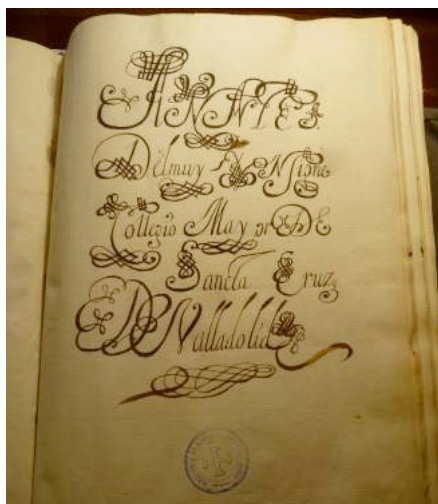 Del muy YNsigne
Collegio Mayor DE
Sancta Cruz
Valladolid